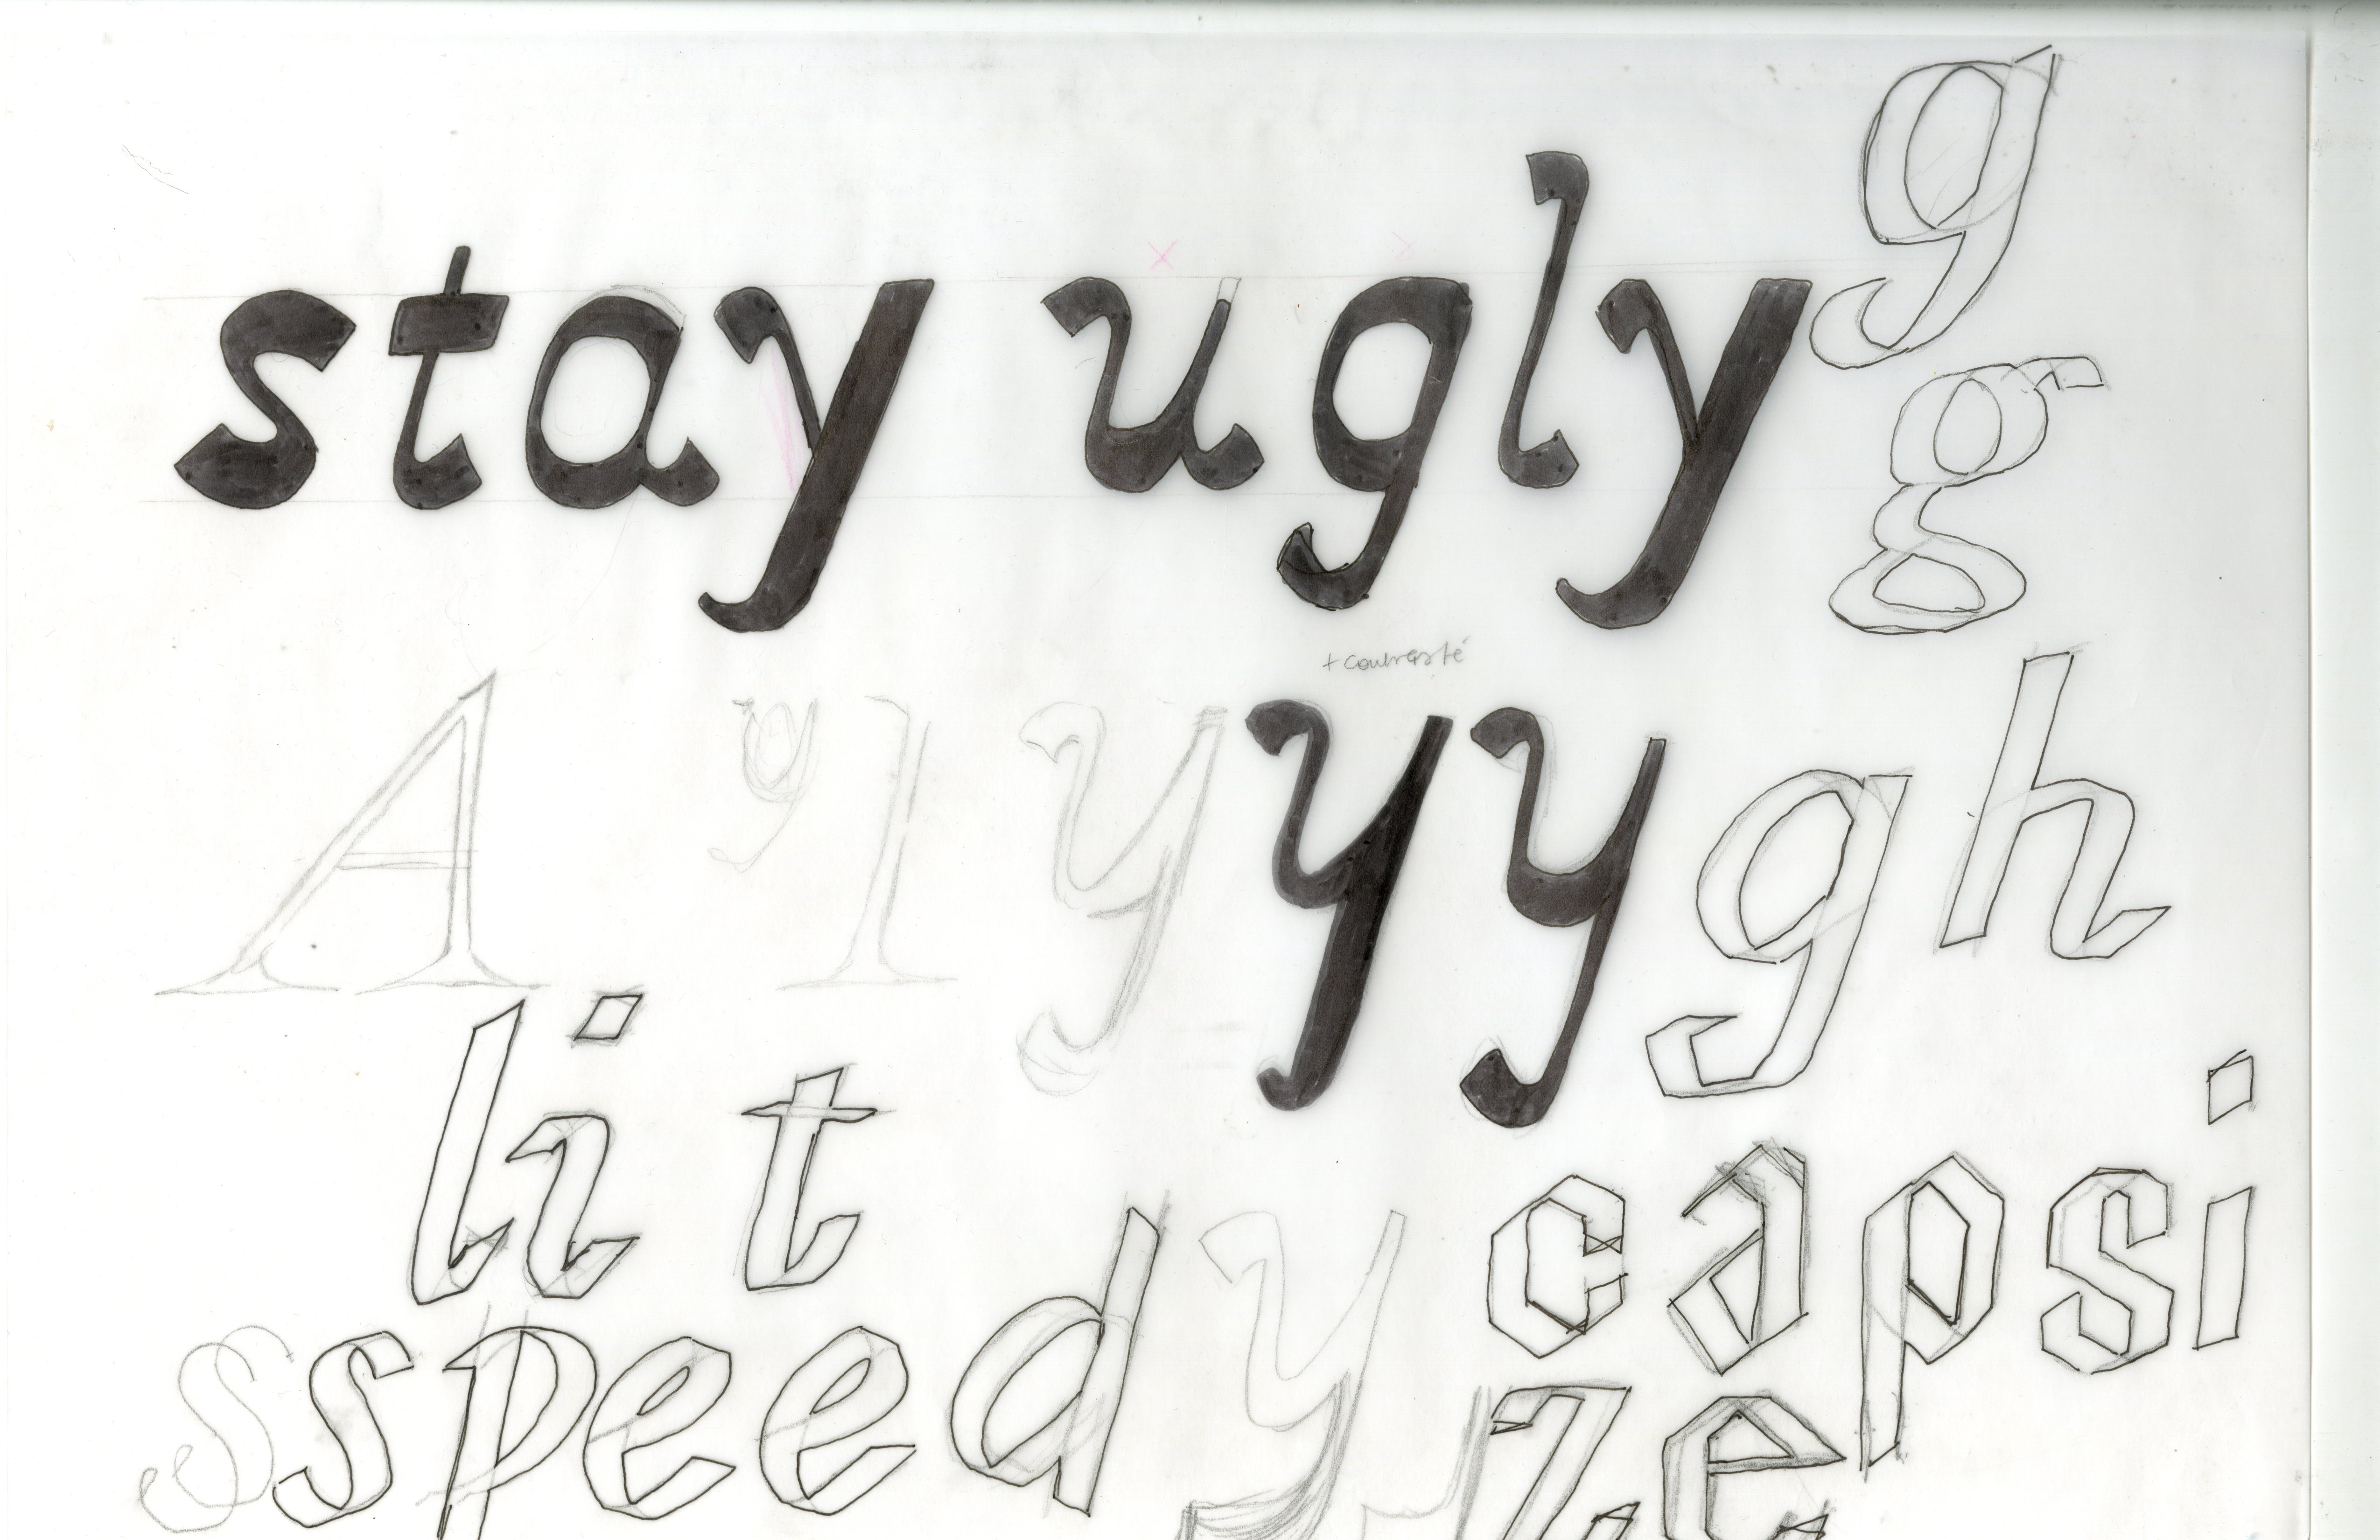 stay ugly g
g
+ contrasté
A y l y y y g h
li t
capsi
sspeed y
ze